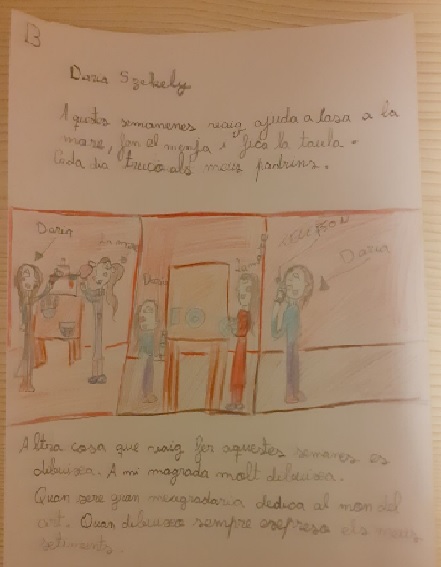 B
Daria Szekely
Aquets semanenes vaig ajuda a casa a la
mare, fen el menja i fica la taula.
Cada dia truco als meus padrins.
Daria
la mare
Daria
Daria
Altra cosa que vaig fer aquestes semanes es
dibuixa. A mi magrada molt dibuixa.
Quan sere gran meagradaria dedica al mon del
art. Quan dibuixo sempre expreso els meus
setiments.